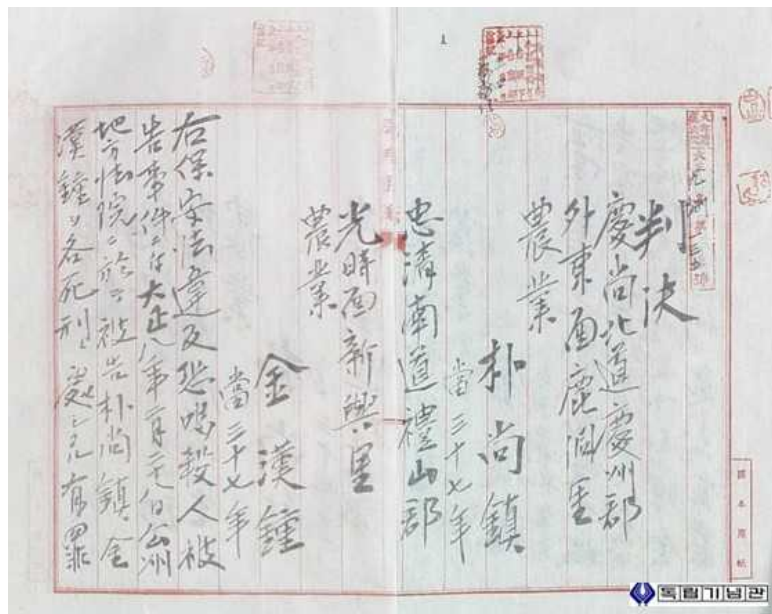 判決
慶尚北道慶州郡
外東面鹿洞里
農業
朴尚鎮
當三十七年
忠清南道禮山郡
光時面新興里
農業
金漢鍾
當三十七年
右保安法違反恐喝殺人被
告事件ニ付大正八年二月
地方法院ニ於テ被告朴尚鎮金
漢鍾ヲ各死刑ニ處シタル有罪
독립기념관